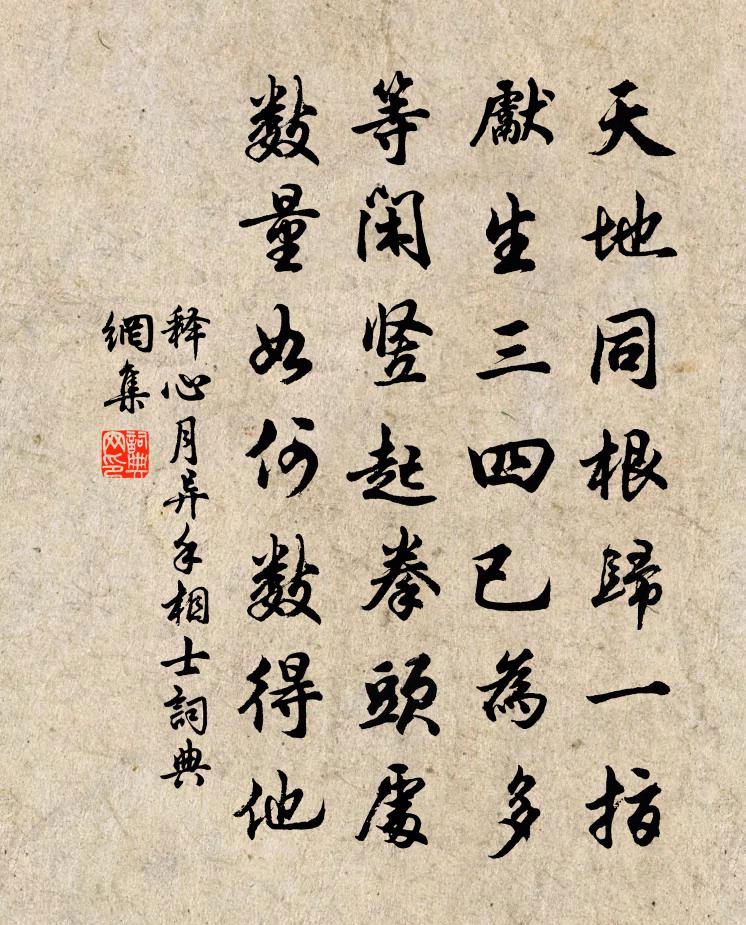 天地同根歸一指
獻生三四已為多
等閑竖起拳頭處
数量如何数得他
释心月异手相士詞典
網集
詞典
网印